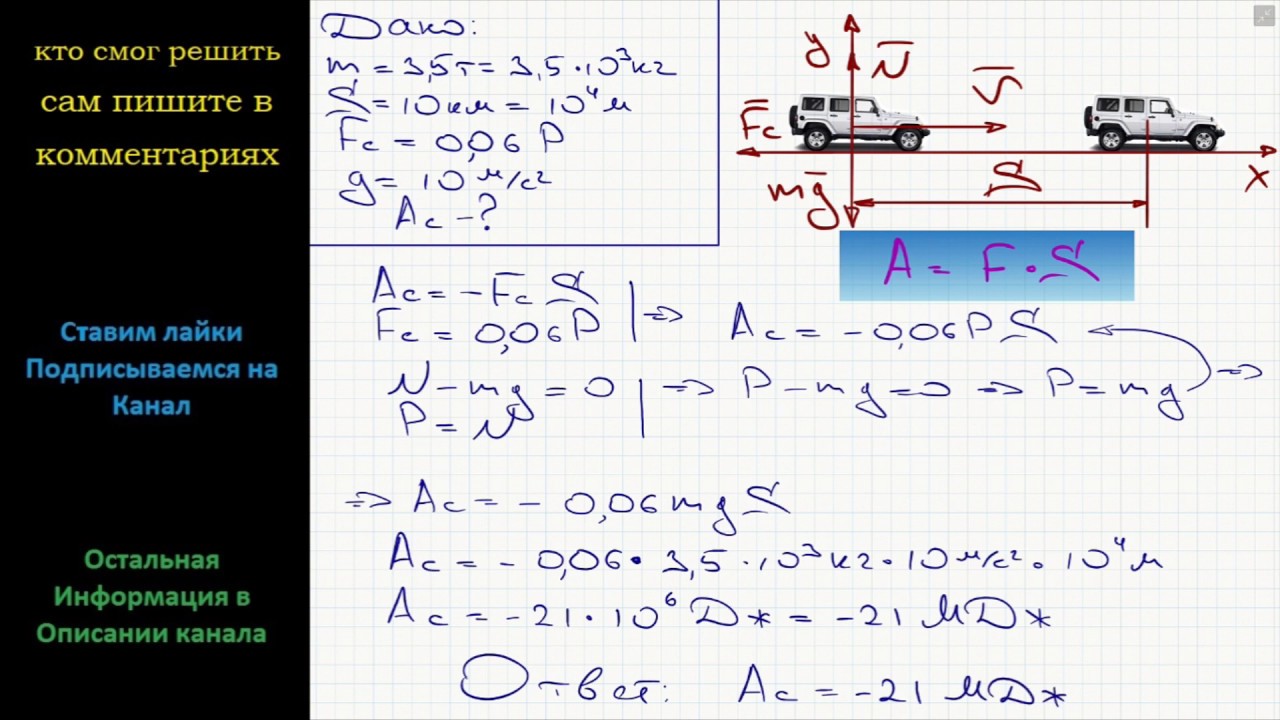 кто смог решить
сам пишите в
комментариях
Ставим лайки
Подписываемся на
Канал
Остальная
Информация в
Описании канала
Дано:
m = 3,5т = 3,5 · 10³ кг
S = 10 км = 10⁴ м
Fc = 0,06 P
g = 10 м/с²
Ac - ?
y N̅
F̅c V̅
mg̅ S x
A = F · S
Ac = - Fc S
Fc = 0,06 P | => Ac = - 0,06 P S
N - mg = 0 | => P - mg = 0 => P = mg =>
P = N
=> Ac = - 0,06 mg S
Ac = - 0,06 · 3,5 · 10³ кг · 10 м/с² · 10⁴ м
Ac = - 21 · 10⁶ Дж = - 21 МДж
Ответ: Ac = - 21 МДж